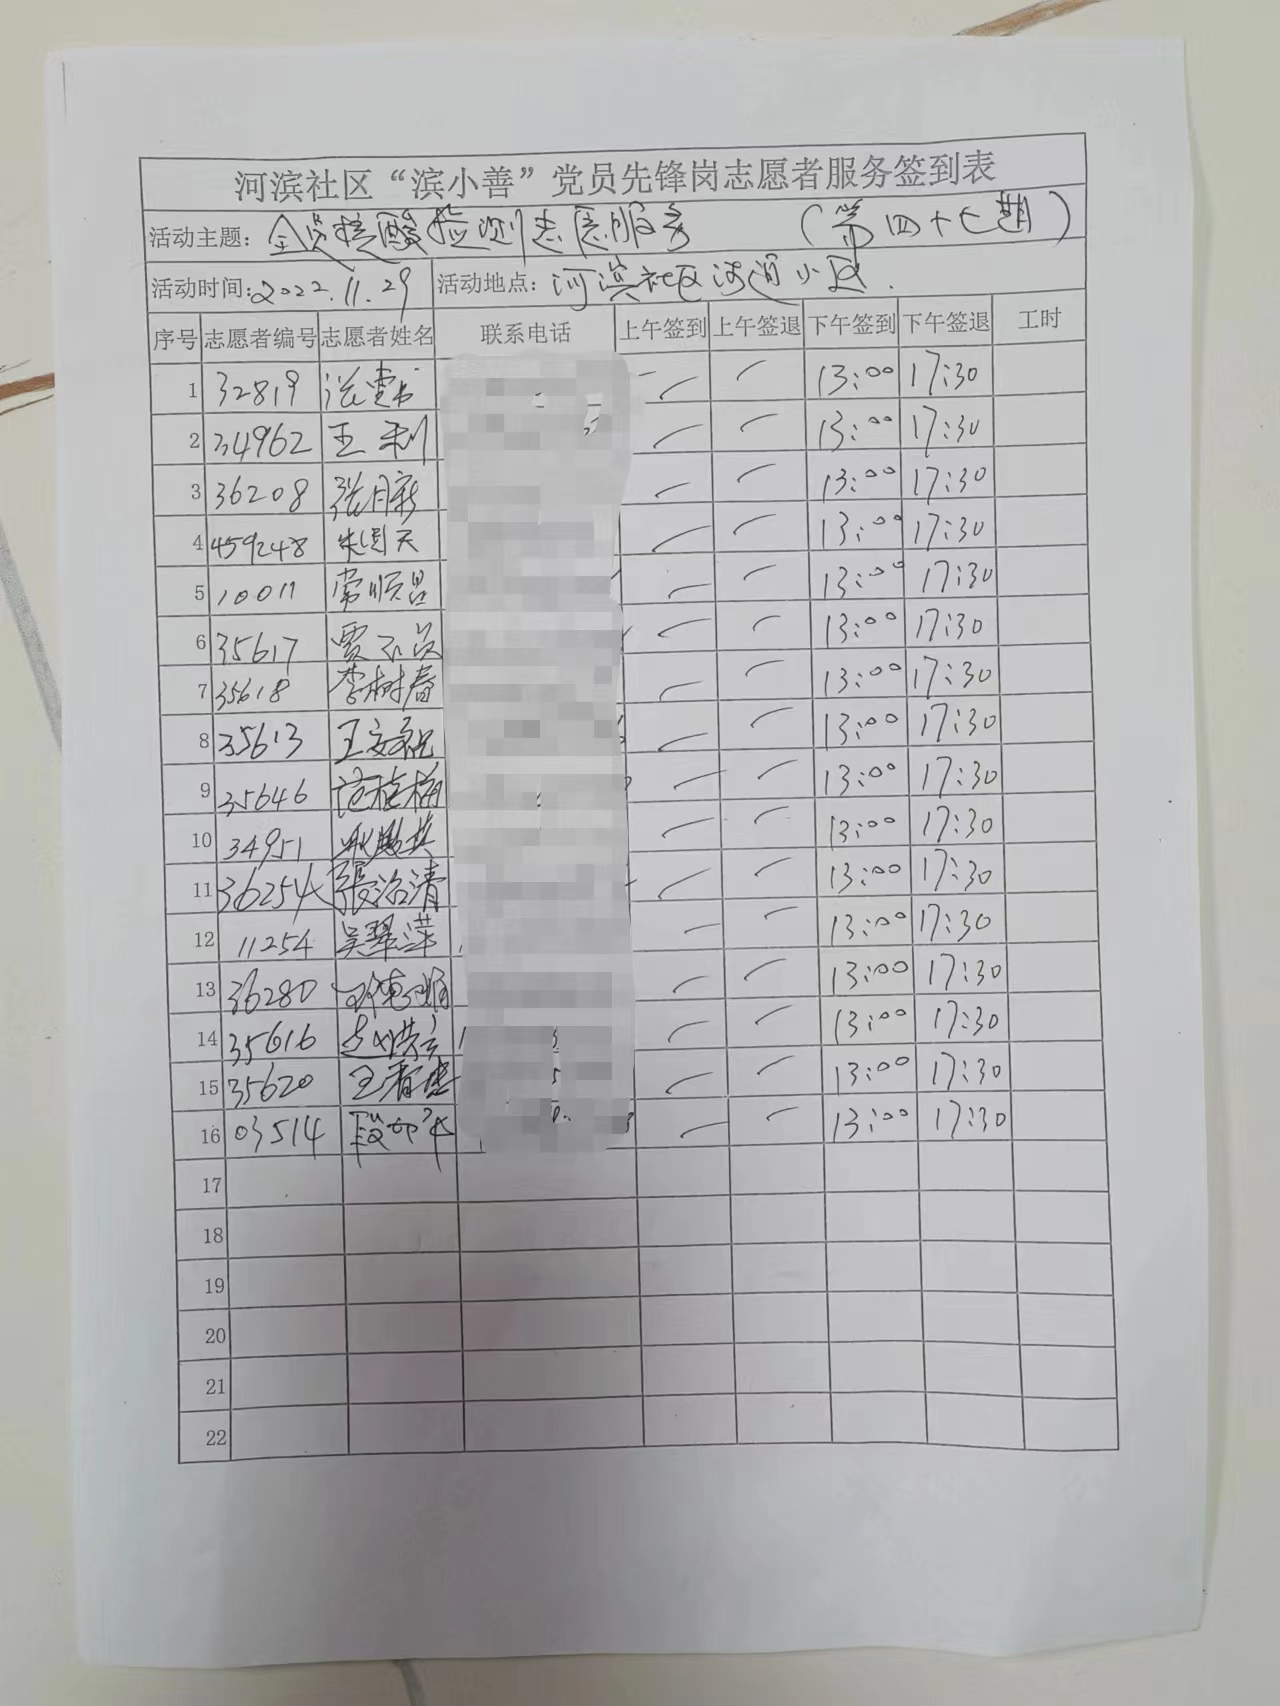 河滨社区“滨小善”党员先锋岗志愿者服务签到表
活动主题：全员核酸检测志愿服务 （第四十七期）
活动时间：2022.11.29 活动地点：河滨社区河道小区.
序号 志愿者编号 志愿者姓名 联系电话 上午签到 上午签退 下午签到 下午签退 工时
1 32819 13:00 17:30
2 34962 王利 13:00 17:30
3 36208 张月新 13:00 17:30
4 459248 13:00 17:30
5 10011 常顺昌 13:00 17:30
6 35617 贾 13:00 17:30
7 35618 李树春 13:00 17:30
8 35613 王 13:00 17:30
9 35646 范桂梅 13:00 17:30
10 34951 13:00 17:30
11 36254 張治清 13:00 17:30
12 11254 吴翠萍 13:00 17:30
13 36280 13:00 17:30
14 35616 13:00 17:30
15 35620 王春 13:00 17:30
16 03514 段 13:00 17:30
17
18
19
20
21
22